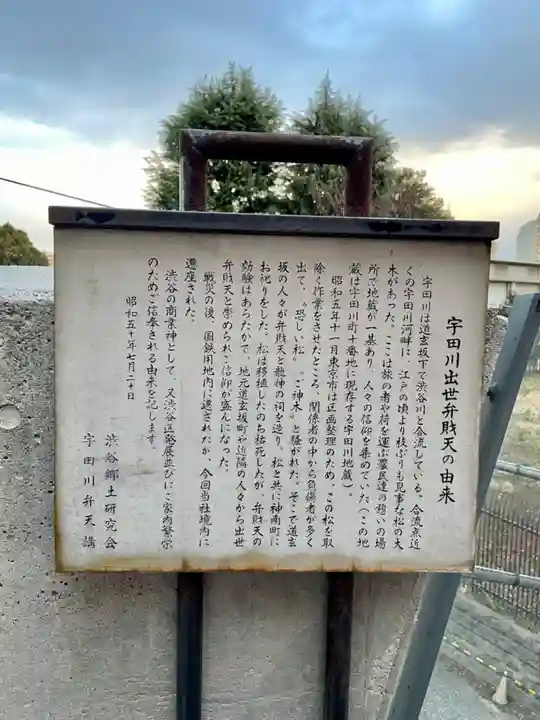 宇田川出世弁財天の由来
宇田川は道玄坂下で渋谷川と合流している。合流点近
くの宇田川河畔に、江戸の頃より枝ぶりも見事な松の大
木があった。ここは旅の者や荷を運ぶ農民達の憩いの場
所で地蔵が一基あり、人々の信仰を集めていた(この地
蔵は宇田川町十番地に現存する宇田川地蔵)
昭和五年十一月東京市は区画整理のため、この松を取
除く作業をさせたところ、関係者の中から負傷者が多く
出て、〝恐しい松〟〝ご神木〟と騒がれた。そこで道玄
坂の人々が弁財天と龍神の祠を造り、松と共に神南町に
お祀りをした。松は移植したのち枯死したが、弁財天の
効験はあらたかで、地元道玄坂町や近隣の人々から出世
弁財天と崇められ、信仰が盛んになった。
戦災の後、国鉄用地内に遷されたが、今回当社境内に
遷座された。
渋谷の商業神として、又渋谷区発展並びにご家内繁栄
のためご信奉される由来を記します。
昭和五十年七月二十日
渋谷郷土研究会
宇田川弁天講